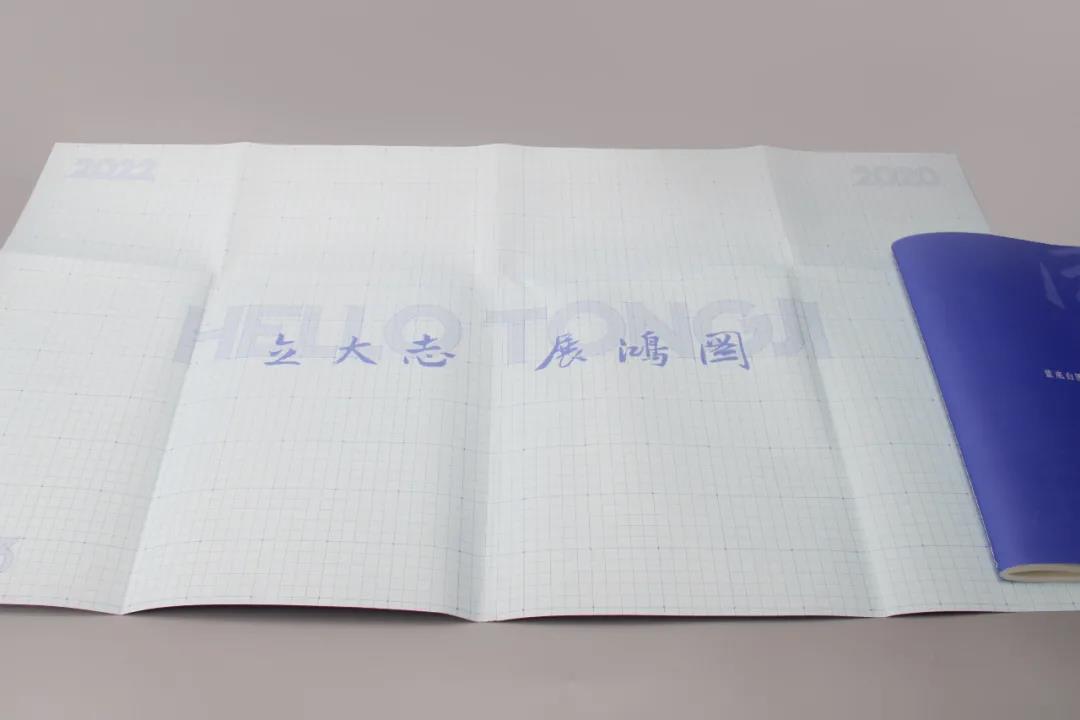 2022
2020
HELLO TONGJI
立大志 展鸿图